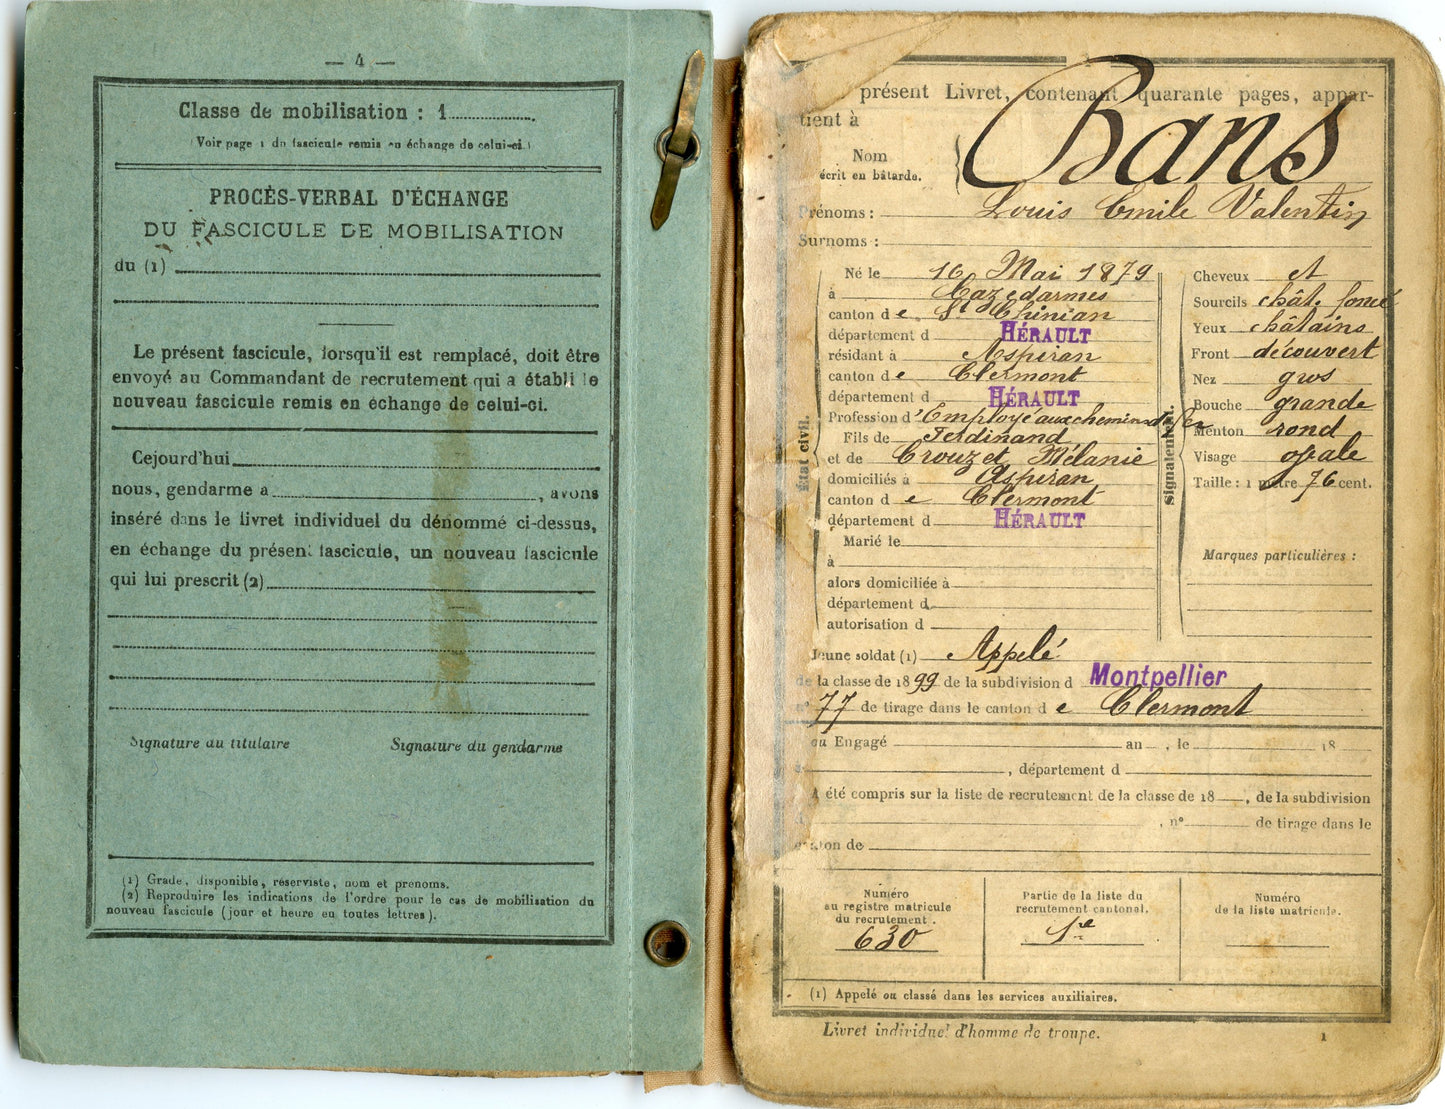 — 4 —
Classe de mobilisation : 1
(Voir page 1 du fascicule remis en échange de celui-ci.)
PROCÈS-VERBAL D'ÉCHANGE
DU FASCICULE DE MOBILISATION
du (1)
Le présent fascicule, lorsqu'il est remplacé, doit être
envoyé au Commandant de recrutement qui a établi le
nouveau fascicule remis en échange de celui-ci.
Cejourd'hui
nous, gendarme a , avons
inséré dans le livret individuel du dénommé ci-dessus,
en échange du présent fascicule, un nouveau fascicule
qui lui prescrit (2)
Signature du titulaire Signature du gendarme
(1) Grade, disponible, réserviste, nom et prenoms.
(2) Reproduire les indications de l'ordre pour le cas de mobilisation du
nouveau fascicule (jour et heure en toutes lettres).
présent Livret, contenant quarante pages, appar-
tient à
Nom
écrit en bâtarde.
Bans
Prénoms : Louis Emile Valentin
Surnoms :
État civil.
Né le 16 Mai 1879
à Cazedarnes
canton de St Chinian
département d HÉRAULT
résidant à Aspiran
canton de Clermont
département d HÉRAULT
Profession d'Employé aux chemins de fer
Fils de Ferdinand
et de Crouzet Mélanie
domiciliés à Aspiran
canton de Clermont
département d HÉRAULT
Marié le
à
alors domiciliée à
département d
autorisation d
Signalement.
Cheveux et
Sourcils chât. foncé
Yeux châtains
Front découvert
Nez gros
Bouche grande
Menton rond
Visage ovale
Taille : 1 mètre 76 cent.
Marques particulières :
Jeune soldat (1) Appelé
de la classe de 1899 de la subdivision d Montpellier
n° 77 de tirage dans le canton de Clermont
ou Engagé an , le 18
, département d
A été compris sur la liste de recrutement de la classe de 18 , de la subdivision
, n° de tirage dans le
canton de
Numéro
au registre matricule
du recrutement.
630
Partie de la liste du
recrutement cantonal.
1re
Numéro
de la liste matricule.
(1) Appelé ou classé dans les services auxiliaires.
Livret individuel d'homme de troupe. 1